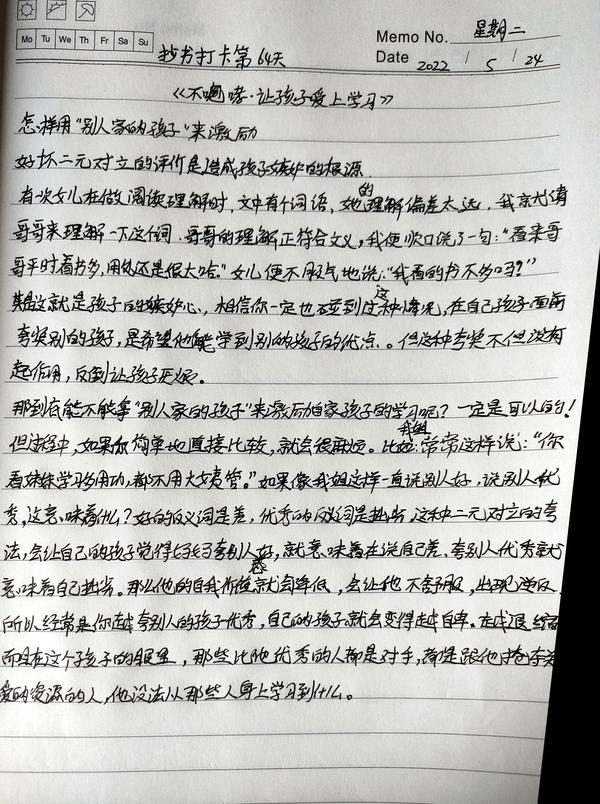 Mo Tu We Th Fr Sa Su
Memo No. 星期二
抄书打卡第64天
Date 2022 / 5 / 24
《不咆哮·让孩子爱上学习》
怎样用"别人家的孩子"来激励
好坏二元对立的评价是造成孩子嫉妒的根源.
有次女儿在做阅读理解时,文中有个词语,她的理解偏差太远,我就请
哥哥来理解一下这个词.哥哥的理解正符合文义,我便顺口说了一句:"看来哥
哥平时看书多,用处还是很大哈."女儿便不服气地说:"我看的书不多吗?"
这就是孩子的嫉妒心,相信你一定也碰到过这种情况,在自己孩子面前
夸奖别的孩子,是希望他能学到别的孩子的优点。但这种夸奖不但没有
起作用,反倒让孩子厌烦。
那到底能不能拿"别人家的孩子"来激励自家孩子的学习呢?一定是可以的!
但过程中,如果你简单地直接比较,就会很麻烦。比如:我姐常常这样说:"你
看妹妹学习多用功,都不用大人管。"如果像我姐这样一直说别人好,说别人优
秀,这意味着什么?好的反义词是差,优秀的反义词是拙劣,这种二元对立的夸
法,会让自己的孩子觉得妈妈夸别人好,就意味着在说自己差、夸别人优秀就
意味着自己拙劣。那么他的自我价值感就会降低,会让他不舒服,出现逆反
所以经常是你越夸别人的孩子优秀,自己的孩子就会变得越自卑。越退缩
而且在这个孩子的眼里,那些比他优秀的人都是对手,都是跟他抢夺关
爱的资源的人,他没法从那些人身上学习到什么。